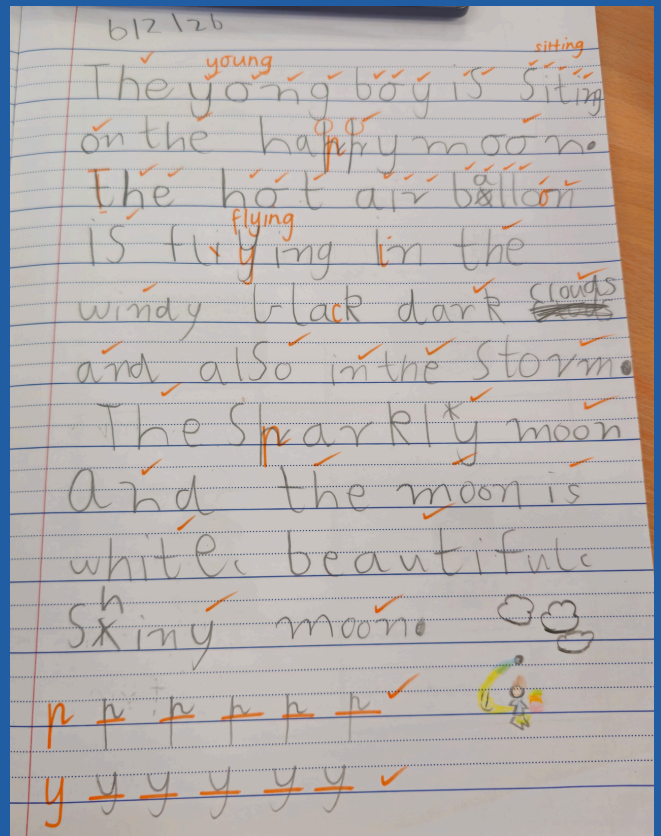 6/2/26
young sitting
The young boy is siting
on the happy moon.
The hot air balloon
flying
is fliying in the
windy black dark clouds
and also in the storm.
The Sparkly moon
and the moon is
white, beautiful,
Shiny moon.
p p p p p p
y y y y y y